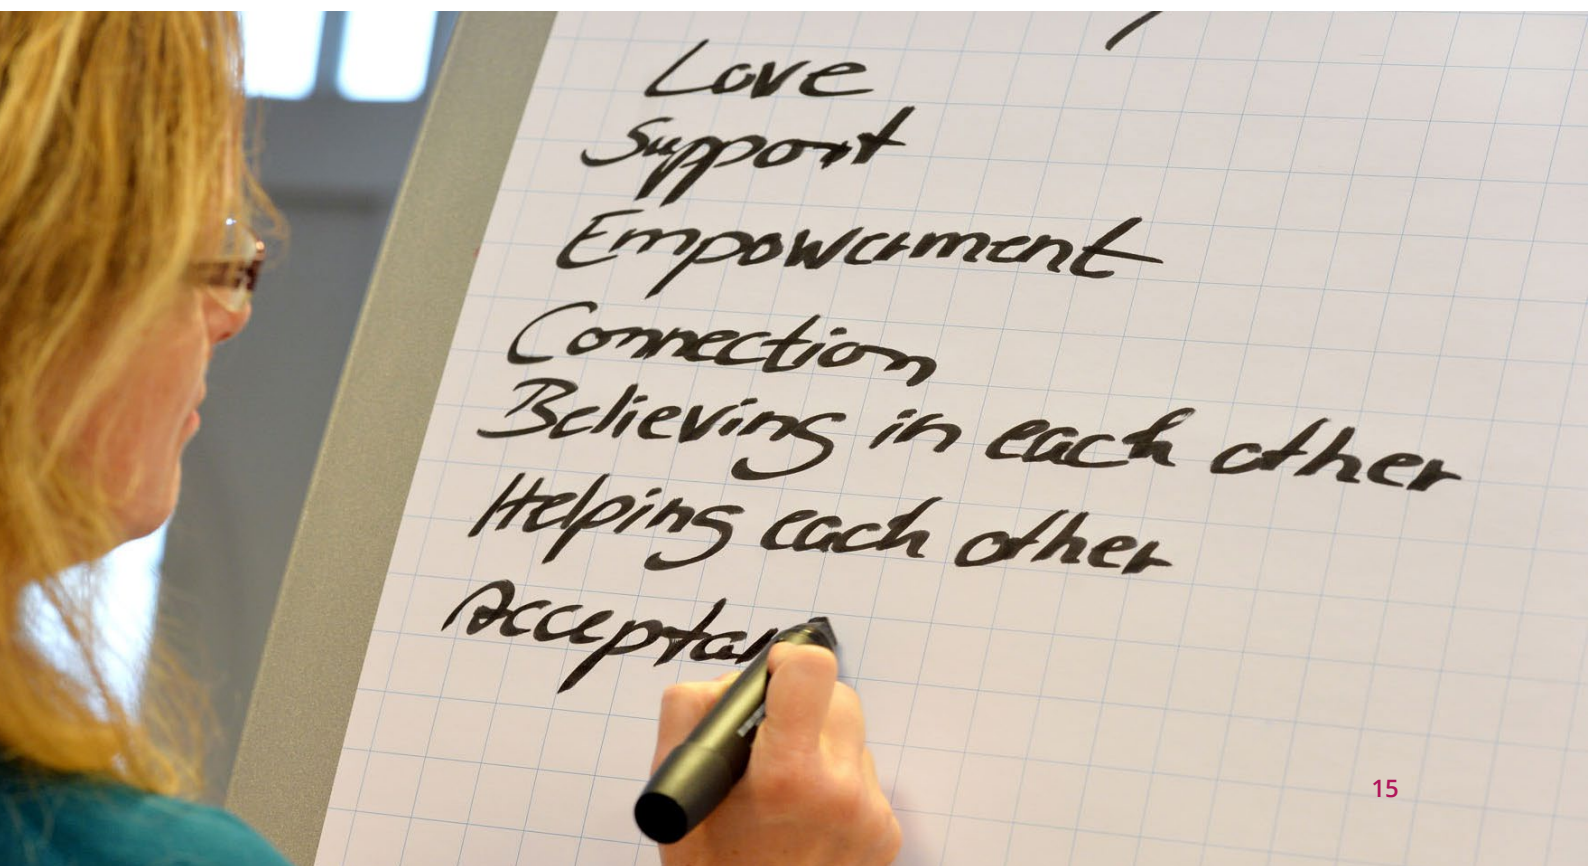 Love
Support
Empowerment
Connection
Believing in each other
Helping each other
Acceptan
15